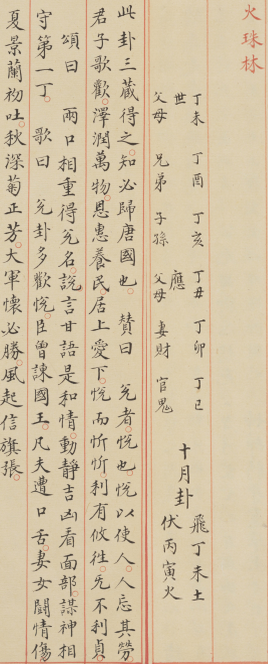 火珠林
丁未 丁酉 丁亥 丁丑 丁卯 丁巳
世 應
父母 兄弟 子孫 父母 妻財 官鬼
十月卦
飛丁未土
伏丙寅火
此卦三藏得之知必歸唐國也 贊曰 兌者悅也悅以使人人忘其勞
君子歌歡澤潤萬物恩惠養民居上愛下悅而忻忻利有攸往無不利貞
頌曰 兩口相重得兌名說言甘語是和情動靜吉凶看面部謀神相
守第一丁 歌曰 兌卦多歡悅臣曾諫國王凡夫遭口舌妻女鬪情傷
夏景蘭初吐秋深菊正芳大軍懷必勝風起信旗張